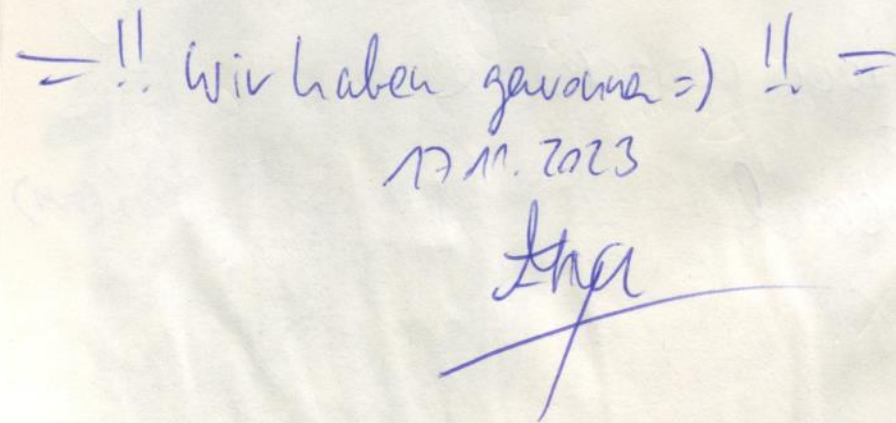 = !! Wir haben gewonnen =) !! =
17.11.2023